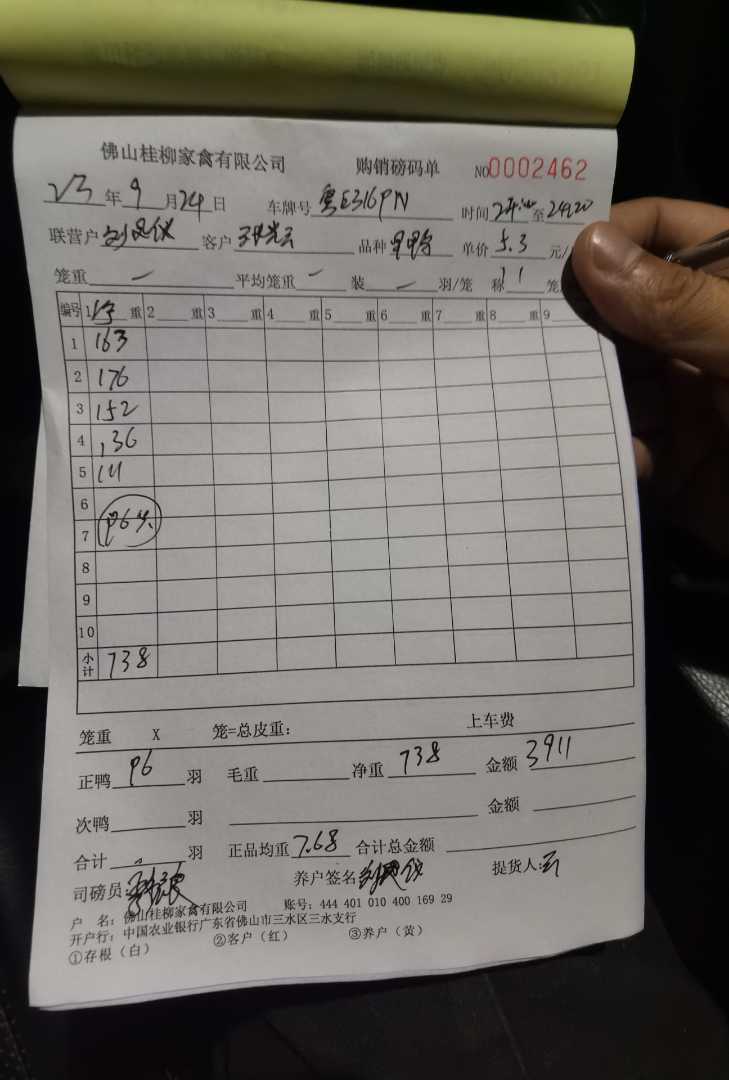 佛山桂柳家禽有限公司 购销磅码单 NO0002462
23年9月24日 车牌号粤E316PN 时间 至24:20
联营户刘 仪 客户 云 品种 单价5.3元/
笼重— 平均笼重— 装—羽/笼 称 笼
编号 1 重 2 重 3 重 4 重 5 重 6 重 7 重 8 重 9
1 163
2 176
3 152
4 136
5 111
6
7 96只
8
9
10
小计 738
笼重 X 笼=总皮重: 上车费
正鸭96羽 毛重 净重738 金额3911
次鸭 羽 金额
合计 羽 正品均重7.68 合计总金额
司磅员: 养户签名刘 仪 提货人:云
户 名: 佛山桂柳家禽有限公司 账号: 444 401 010 400 169 29
开户行: 中国农业银行广东省佛山市三水区三水支行
①存根（白） ②客户（红） ③养户（黄）